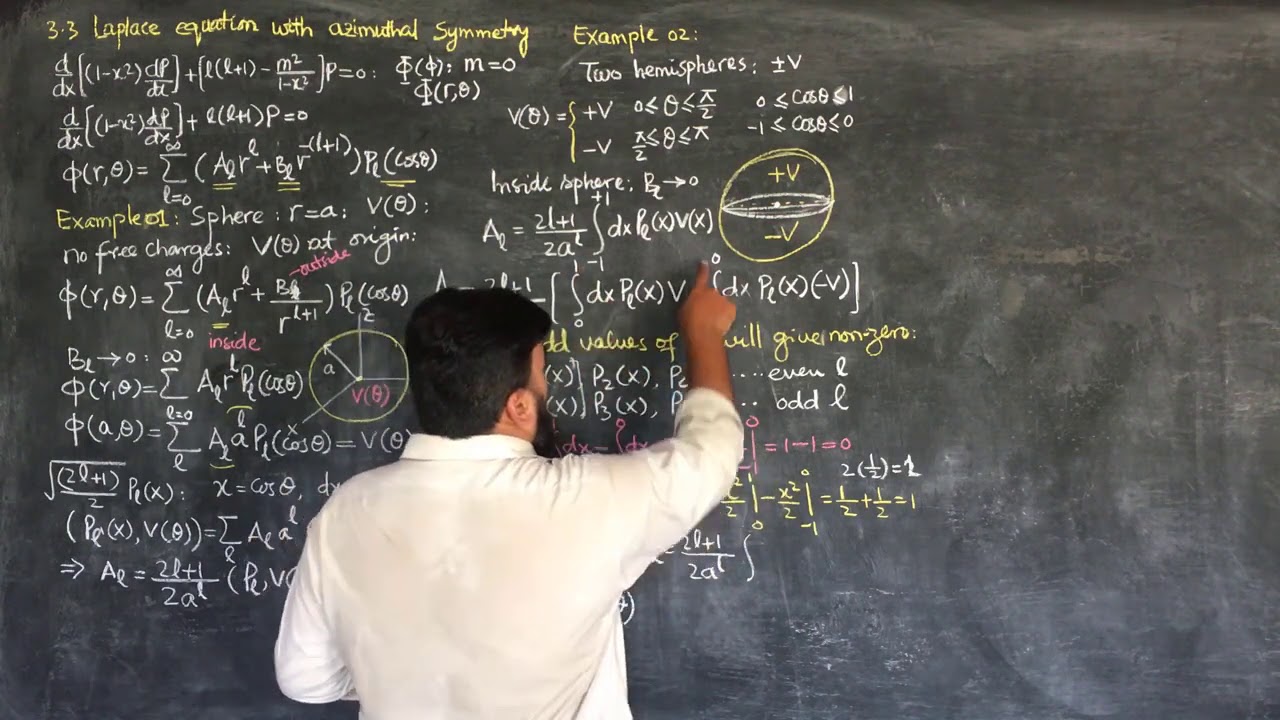 3.3 Laplace equation with azimuthal Symmetry
d/dx[(1-x²)dP/dx]+[l(l+1)-m²/(1-x²)]P=0: Φ(ϕ): m=0
Φ(r,θ)
d/dx[(1-x²)dP/dx]+l(l+1)P=0
ϕ(r,θ)=∑_{l=0}^{∞}(A_l r^l+B_l r^{-(l+1)})P_l(cosθ)
Example 01: Sphere: r=a: V(θ):
no free charges: V(θ) at origin:
outside
ϕ(r,θ)=∑_{l=0}^{∞}(A_l r^l+B_l/r^{l+1})P_l(cosθ)
inside
z
B_l→0:
ϕ(r,θ)=∑_{l=0}^{∞}A_l r^l P_l(cosθ)
a
V(θ)
x
ϕ(a,θ)=∑_l A_l a^l P_l(cosθ)=V(θ)
√((2l+1)/2) P_l(x): x=cosθ, dx
(P_l(x),V(θ))=∑_l A_l a^l
⇒ A_l=(2l+1)/(2a^l) (P_l,V
Example 02:
Two hemispheres: ±V
V(θ)={ +V 0≤θ≤π/2 0≤cosθ≤1
-V π/2≤θ≤π -1≤cosθ≤0
Inside sphere: B_l→0
+V
-V
A_l=(2l+1)/(2a^l) ∫_{-1}^{+1} dx P_l(x)V(x)
2l+1 [∫_0^1 dx P_l(x)V ∫^0 dx P_l(x)(-V)]
values of will give non-zero:
(x), P₂(x), P ... even l
(x), P₃(x), P ... odd l
dx-∫^0 dx |^0=1-1=0
2(1/2)=1
x²/2|_0-x²/2|_{-1}^0=1/2+1/2=1
=(2l+1)/(2a^l) ∫